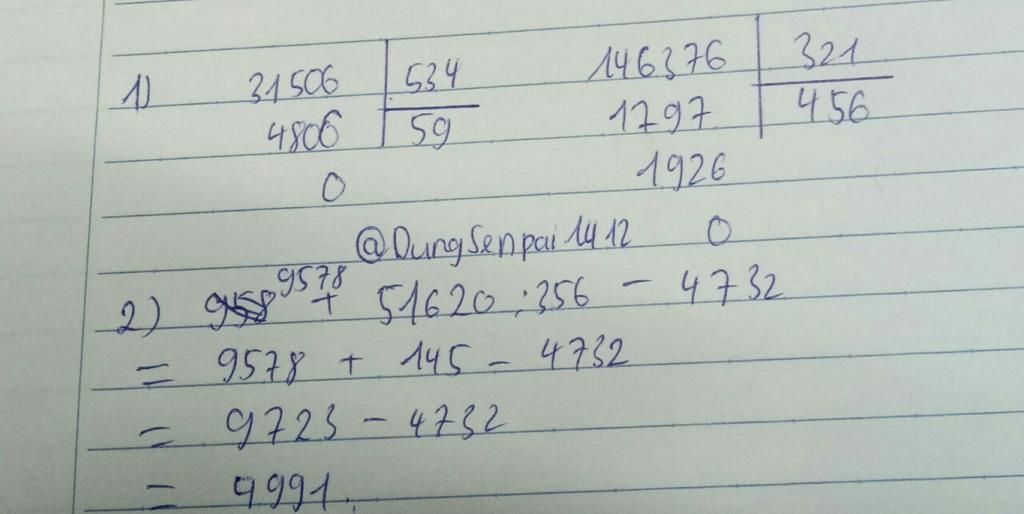 1) 31506 534 146376 321
4806 59 1797 456
0 1926
@DungSenpai1412 0
2) 9578 + 51620 : 356 - 4732
= 9578 + 145 - 4732
= 9723 - 4732
= 4991.